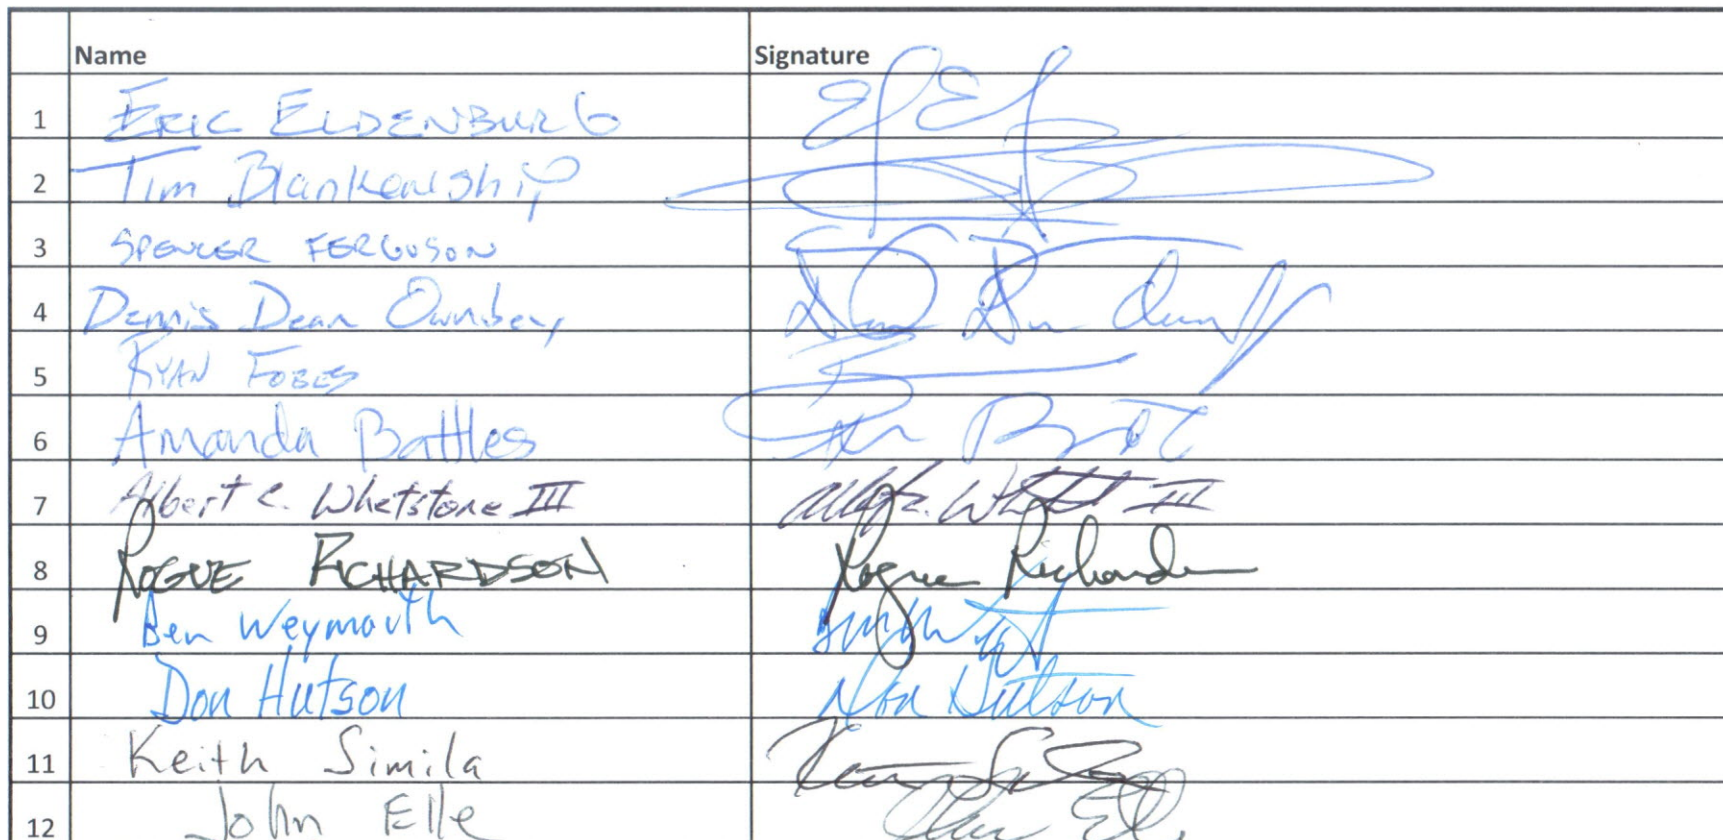 Name Signature
1 ERIC ELDENBURG
2 Tim Blankenship
3 SPENCER FERGUSON
4 Dennis Dean Ownbey
5 RYAN FOBES
6 Amanda Battles
7 Albert C. Whetstone III III
8 ROGUE RICHARDSON Rogue Richardson
9 Ben Weymouth
10 Don Hutson Don Hutson
11 Keith Simila
12 John Elle